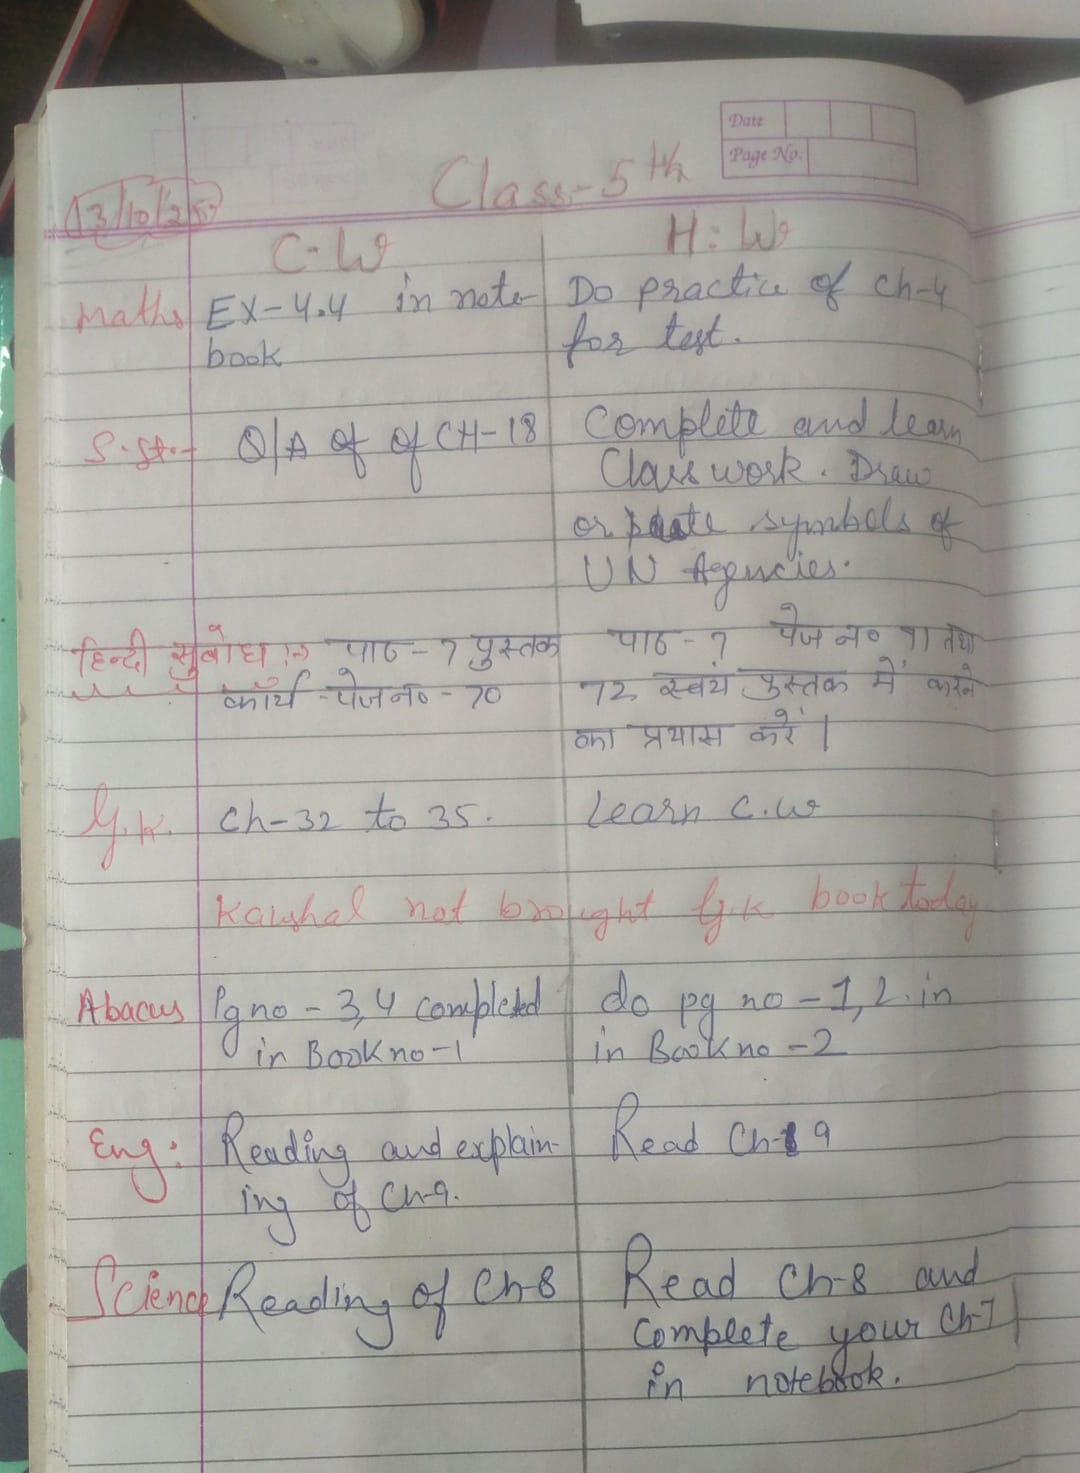 Date
Page No.
Class-5th
13/10/25
C.W H.W
Maths EX-4.4 in note- Do practice of ch-4
book for test.
S.St.- Q/A of of CH-18 Complete and learn
Class work. Draw
or paste symbols of
UN Agencies.
हिन्दी सुबोध :- पाठ-7 पुस्तक पाठ-7 पेज न० 71 तथा
कार्य-पेज न०-70 72 स्वयं पुस्तक में करने
का प्रयास करें।
G.K. Ch-32 to 35. Learn C.W
Kaushal not brought G.K book today
Abacus Pg no - 3,4 completed do pg no - 1,2. in
in Book no-1 in Book no -2
Eng: Reading and explain- Read Ch-9
ing of Ch-9.
Science Reading of Ch-8 Read Ch-8 and
Complete your Ch-7
in notebook.